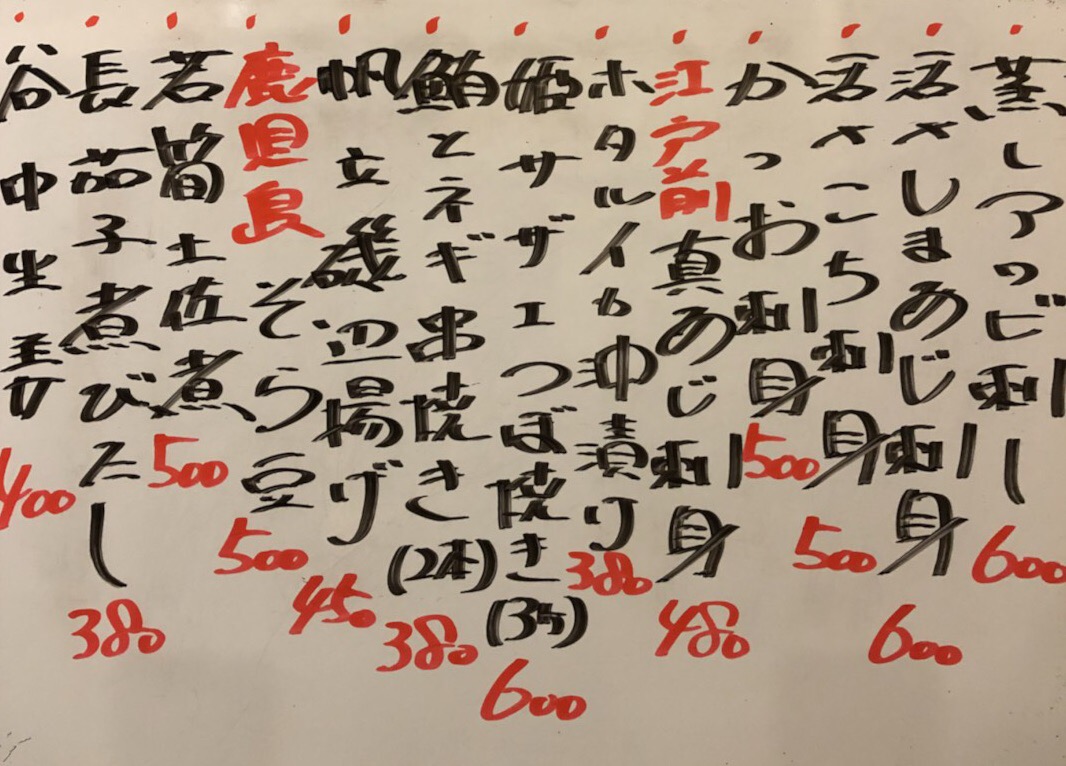 蒸しアワビ刺し 600
活〆しまあじ刺身 600
活〆こち刺身 500
かつお刺身 500
江戸前真あじ刺身 480
ホタルイカ沖漬け 380
姫サザエつぼ焼き(3ケ) 600
鮪とネギ串焼き(2本) 380
帆立磯辺揚げ 450
鹿児島そら豆 500
若筍土佐煮 500
長茄子煮びたし 380
谷中生姜 400